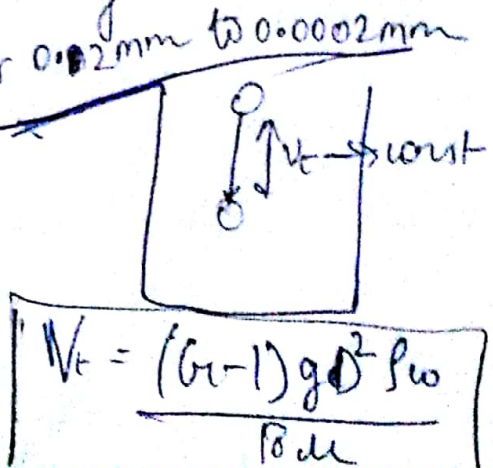 0.02mm to 0.0002mm
Vt → const
Vt = (G-1) g D² ρω
18 μ